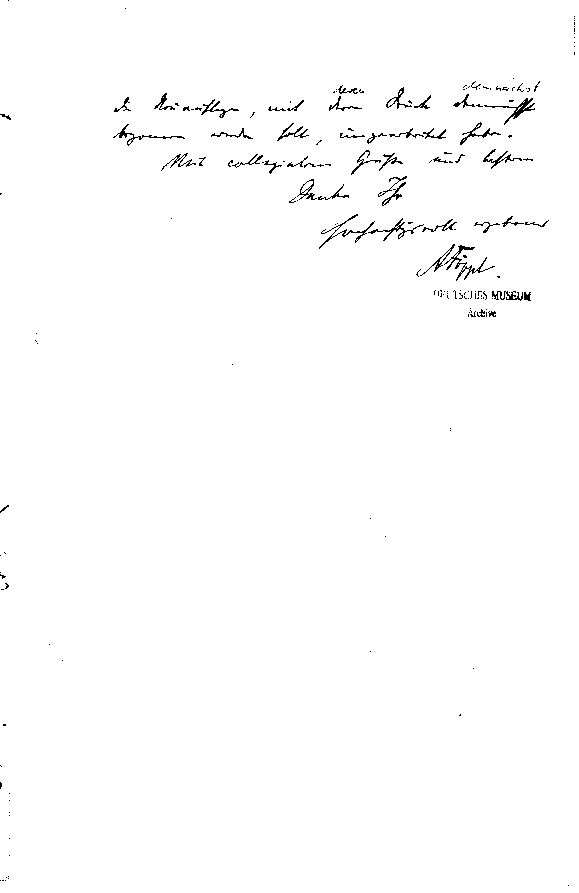 deren demnächst
die Neuauflage, mit deren Druck demnächst
begonnen werden soll, umgearbeitet habe.
Mit collegialem Gruße und bestem
Danke Ihr
hochachtungsvoll ergebener
AFöppl.
DEUTSCHES MUSEUM
Archive